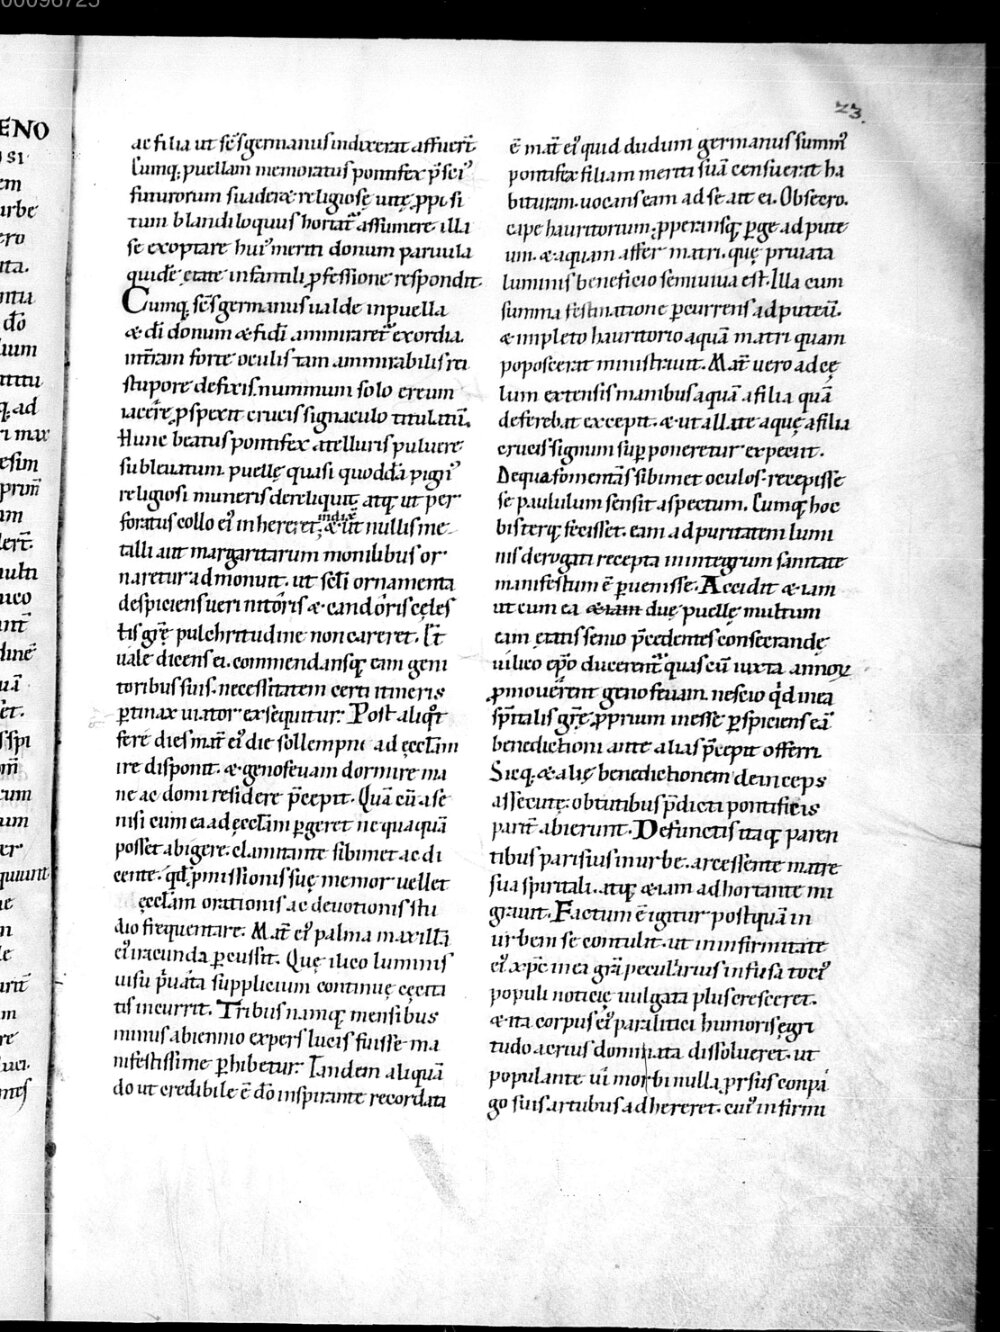 00096725
23.
ENO
ac filia ut sc̄s germanus indixerat affuer̄t
Cumq; puellam memoratus pontifex p̄sci᾽
futurorum suaderæ religiosę uitę, ꝓpisi
tum blandiloquus hortat̄ assumere illa
se exoptare hui᾽ meriti donum paruula
quidē ętate infantili ꝓfessione respondit.
Cumq; sc̄s germanus ualde in puella
æ dī donum æ fidī ammiraret᷑ exordia.
int̄ram forte oculis tam ammirabilis rei
stupore defixis. nummum solo ereum
iacēre ꝓspexit crucis signaculo titulatū.
Hunc beatus pontifex a telluris puluere
subleuatum. puellę quasi quoddā pigri᾽
religiosi muneris dereliquit, atq; ut per
foratus collo ei᾽ inhereret, indixit æ ut nullis me-
talli aut margaritarum monilibus or
naretur admonuit. ut sc̄li ornamenta
despiciens ueri nitóris æ candóris cęles
tis grę̄ pulchritudine non careret. Et̄
uale dicens ei. commendansq; eam geni
toribus suis. necessitatem cerri itineris
ꝑtinax uiator exsequitur. Post aliqͦt
fere dies mat̄ ei᾽ die sollempni ad ęccl̄am
ire disponit. æ genofeuam dormire ma
ne ac domi residere p̄cepit. Quā cū a se
nisi cum ea ad ęccl̄am ꝑgeret nequaquā
posset abigere. clamitante sibimet ac di
cente. qđ ꝓmissionis suę memor uellet
ęccl̄am orationis ac deuotionis stu
dio frequentare. Mat̄ ei᾽ palma maxillā
ei᾽ iracunda ꝑcussit. Quę ilico luminis
uisu p̄uata supplicium continuę cęcita
tis incurrit. Tribus namq; mensibus
minus abiennio expers lucis fuisse ma
nifestissime ꝑhibetur. Tandem aliquā
do ut credibile ē dō inspirante recordata
ē mat̄ ei᾽ quid dudum germanus summi᾽
pontifex filiam meriti suā censuerit ha
bituram. uocans eam ad se ait ei. Obsecro.
cape hauritorium. ꝓperansq; ꝑge ad pute
um. æ aquam affer matri. quę priuata
luminis beneficio semiuiua est. Illa cum
summa festinatione ꝑcurrens ad puteū.
æ impleto hauritorio aquā matri quam
poposcerat ministrauit. Mat̄ uero ad cę
lum extensis manibus aquā a filia quā
deferebat excepit. æ ut allatę aquę a filia
crucis signum suꝑ poneretur expeciit.
De qua fomentās sibimet oculos. recepisse
se paululum sensit aspectum. Cumq; hoc
bis terq; fecisset. eam ad puritatem lumi
nis derogati recepta in integrum sanitate
manifestum ē ꝑuenisse. Accidit æ iam
ut cum ea æ iam duę puellę multum
eam ętatis senio p̄cedentes consecrandę
uilico ep̄o ducerent᷑ quas cū iuxta annoꝝ
ꝓmouérent genofeuam. nescio qđ in ea
sp̄italis grę̄ ꝓprium inesse ꝑspiciens eā
benedictioni ante alias p̄cepit offerri
Sicq; æ alię benedictionem deinceps
assecutę: obtutibus p̄dicti pontificis
parit̄ abierunt. Defunctis itaq; paren
tibus parisius in urbe. arcessente matre
sua spiritali. atq; æ iam adhortante mi
grauit. Factum ē igitur postquā in
urbem se contulit. ut in infirmitate
ei᾽ xp̄c in ea grā peculiarius infusa toci᾽
populi noticię uulgata plus cresceret.
æ ita corpus ei᾽ paralitici humoris ęgri
tudo acrius dominata dissolueret. ut
populante ui morbi nulla ꝓrsus conpa
go suis artubus adhereret. cui᾽ infirmi